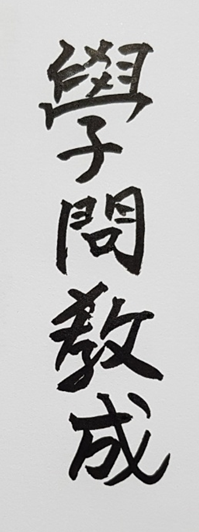 學問教成